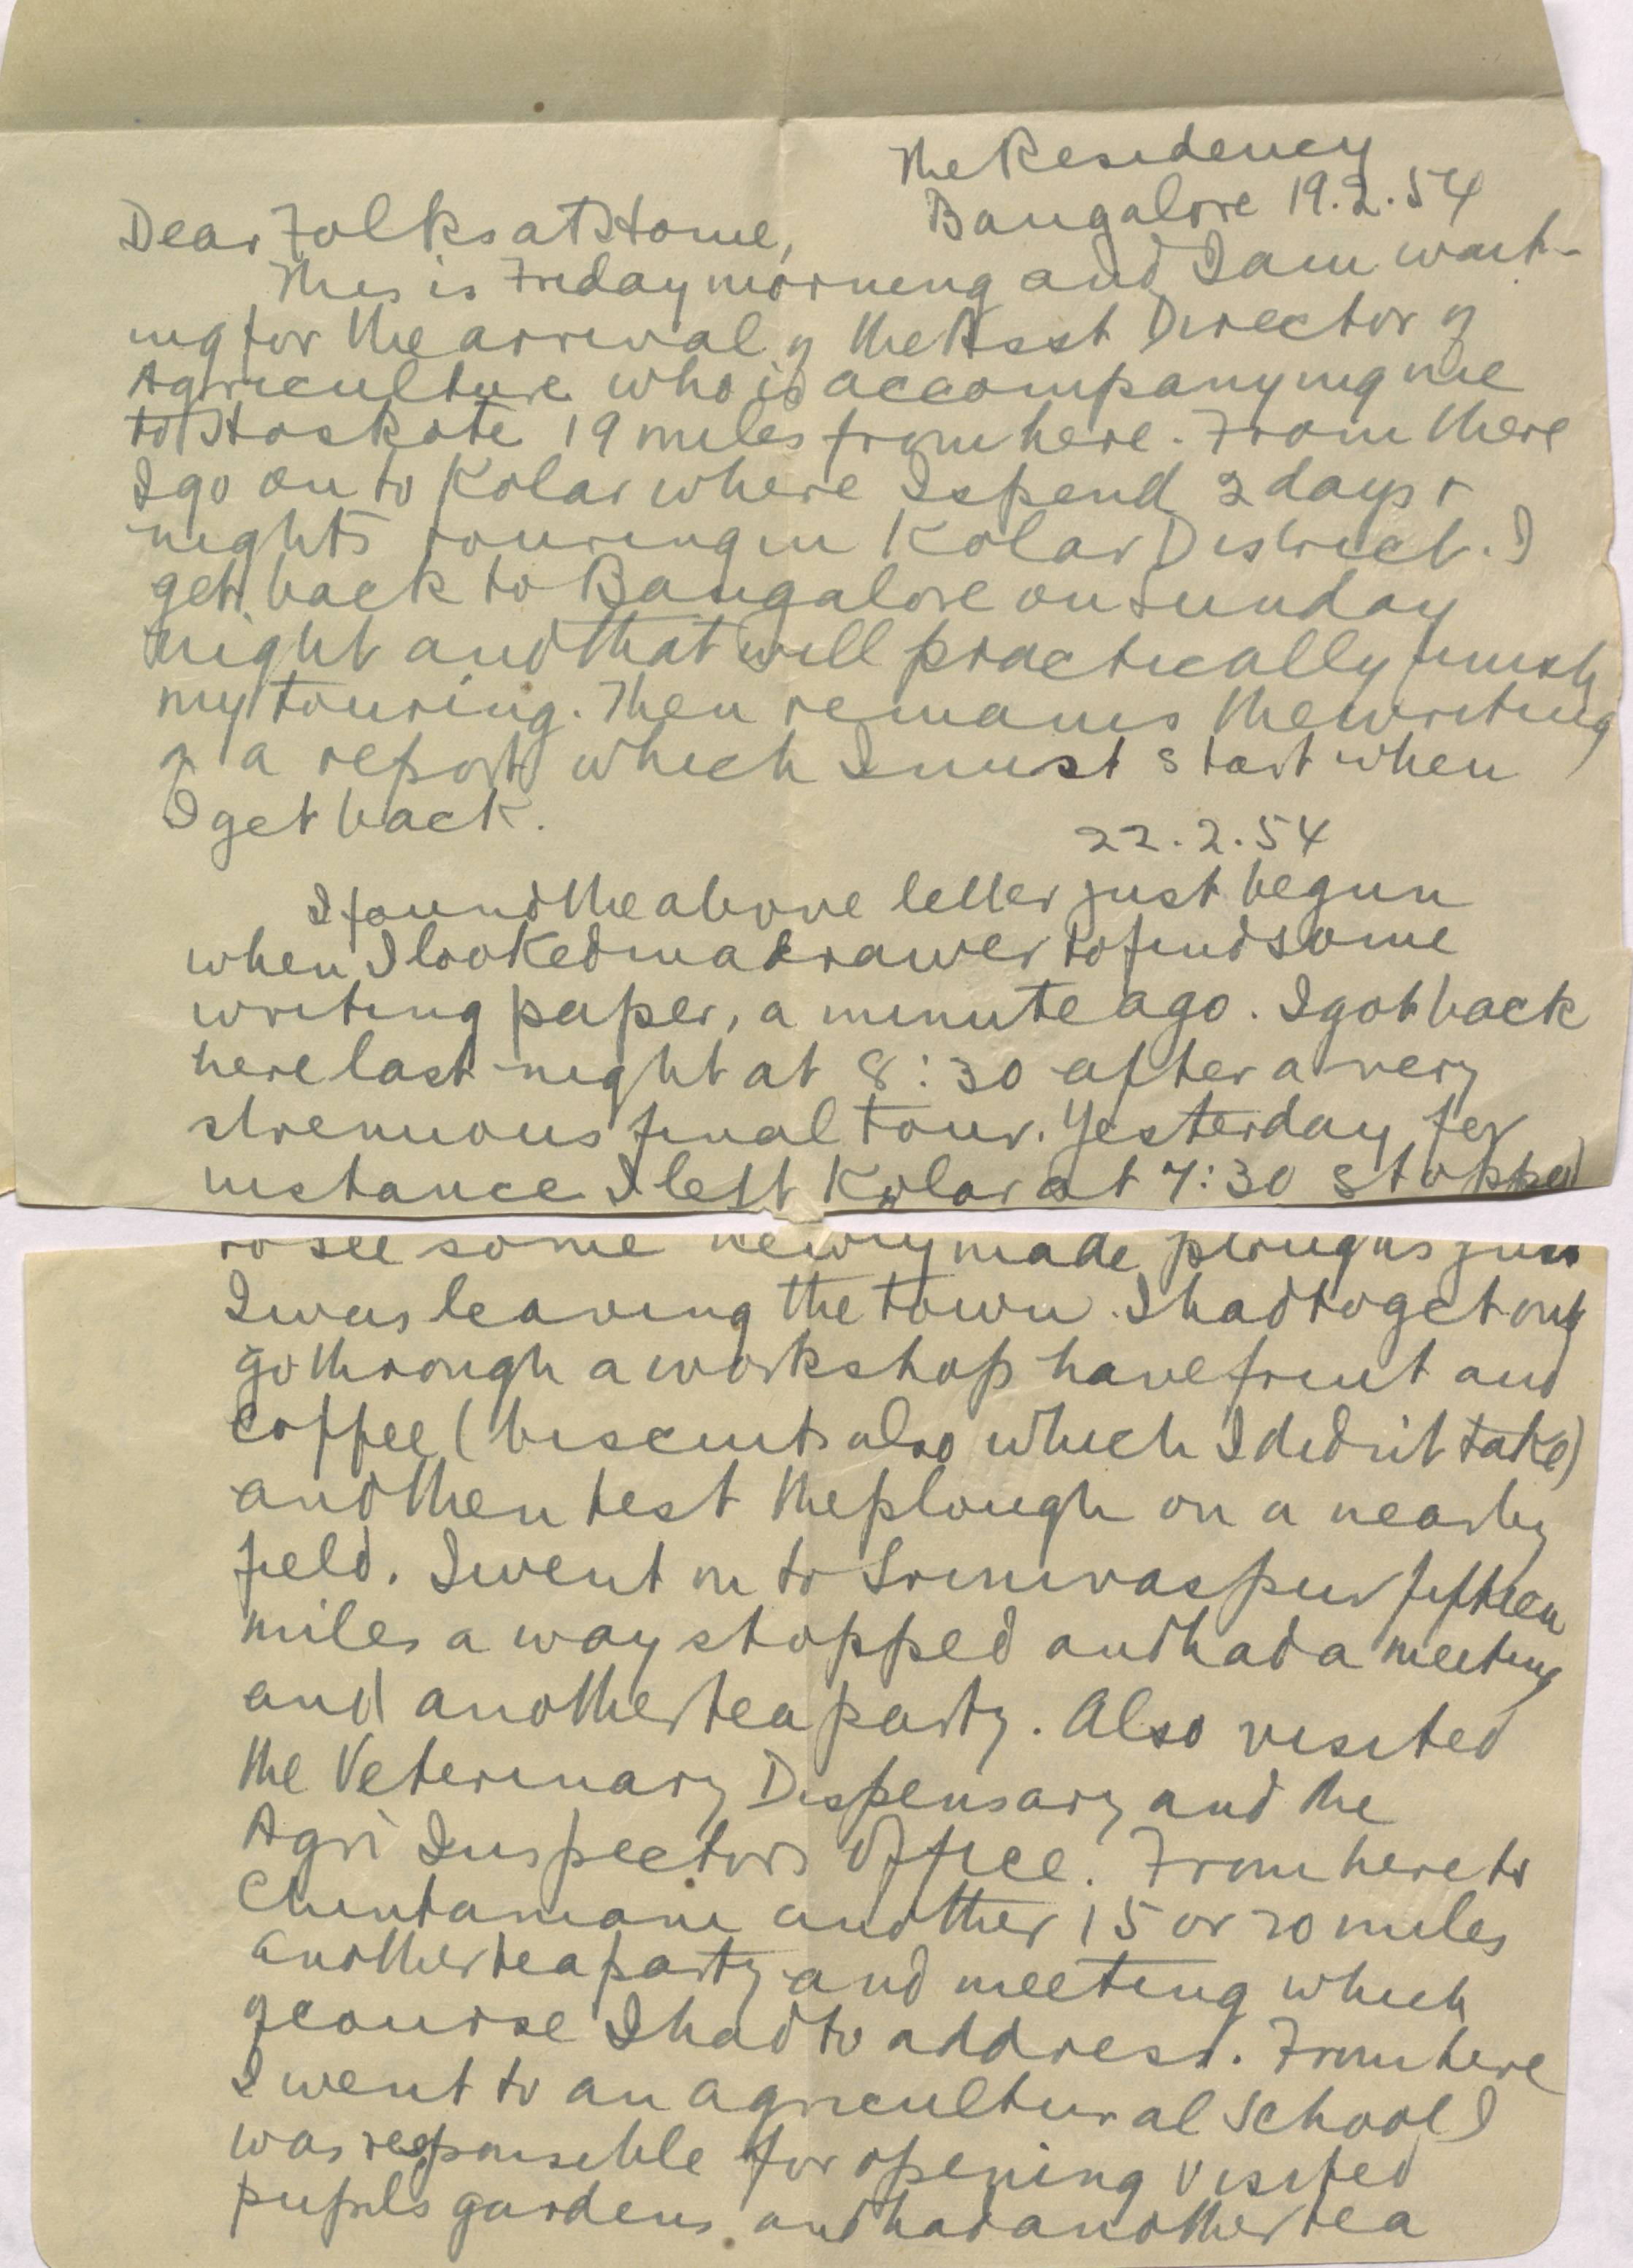 The Residency
Bangalore 19.2.54
Dear Folks at Home,
This is Friday morning and I am wait-
ing for the arrival of the Asst Director of
Agriculture who is accompanying me
to Hoskote 19 miles from here. From there
I go on to Kolar where I spend 2 days +
nights touring in Kolar District. I
get back to Bangalore on Sunday
night and that will practically finish
my touring. Then remains the writing
of a report which I must start when
I get back.
22.2.54
I found the above letter just begun
when I looked in a drawer to find some
writing paper, a minute ago. I got back
here last night at 8:30 after a very
strenuous final tour. Yesterday for
instance I left Kolar at 7:30 stopped
to see some newly made ploughs just
I was leaving the town. I had to get out
go through a workshop have fruit and
coffee (biscuits also which I didn't take)
and then test the plough on a nearby
field. I went on to Srinivaspur fifteen
miles away stopped and had a meeting
and another tea party. Also visited
the Veterinary Dispensary and the
Agri Inspectors Office. From here to
Chintamani another 15 or 20 miles
another tea party and meeting which
of course I had to address. From here
I went to an agricultural school I
was responsible for opening visited
pupils gardens and had another tea